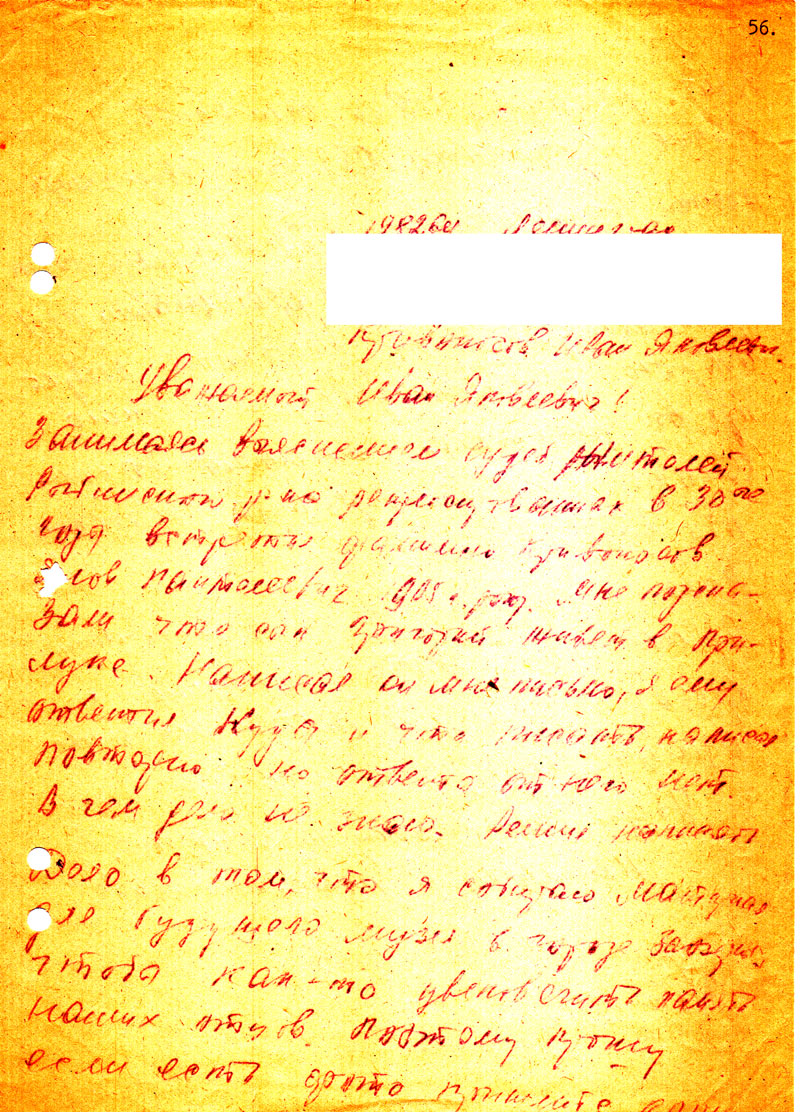 56.
198260 Ленинград
Кривоносов Иван Яковлевич.
Уважаемый Иван Яковлевич!
Занимаясь выяснением судеб жителей
р-на репрессированных в 30ые
года встретил фамилию Кривоносов
Яков 905 г. рожд. Мне подска-
зали что сын Григорий живет в При-
луке. Написал он мне письмо, я ему
ответил куда и что писать, написал
повторно но ответа от него нет.
В чем дело не знаю. Решил написать
Дело в том, что я собираю материал
для будущего музея в городе
чтобы как-то увековечить память
наших отцов. Поэтому прошу
если есть фото пришлите